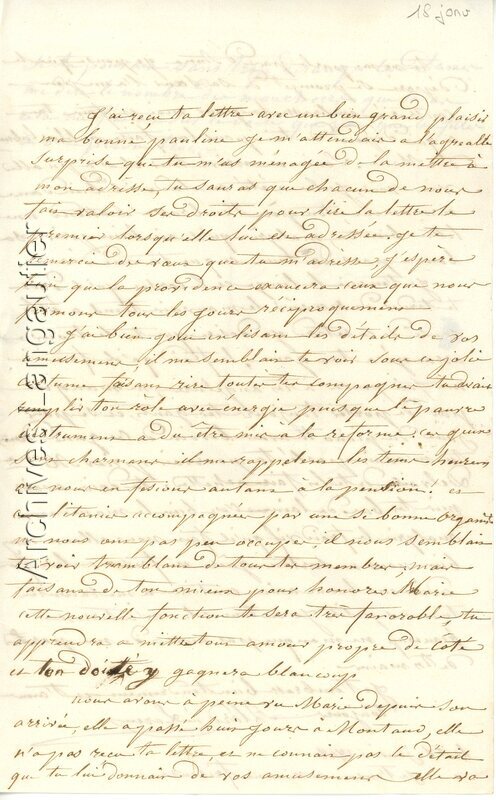 18 janv
J'ai reçu ta lettre avec un bien grand plaisir
ma bonne pauline je m'attendais a l'agreable
surprise que tu m'as ménagée de la mettre à
mon adresse, tu sauras que chacun de nous
fais valoir ses droits pour lire la lettre le
premier lorsqu'elle lui est adressée. je te
mercie des vœux que tu m'adresse, j'espère
que la providence exaucera ceux que nous
tous les jours réciproquement
J'ai bien joui en lisant les détails de vos
amusements, il me semblait te voir sous ce joli
faisant rire toutes tes compagnes tu
remplir ton rôle avec énergie puisque le pauvre
instrument a du être mis a la reforme. ces jeux
charmants il me rappelent les tems heureux
nous en fesions autant a la pension. 
litanie accompagnée par une si bonne organiste
nous ont pas peu occuper, il nous semblait
voir tremblant de tous tes membres, mais
faisant de ton mieux pour honorer Marie
cette nouvelle fonction te sera très favorable, tu
apprendra a mettre tout amour propre de côté
et ton doité y gagnera beaucoup
nous avons à peine vu Marie depuis son
arrivée, elle a passé huit jours à Montaud, elle
n'a pas recu ta lettre, et ne connait pas le détail
que tu lui donnais de vos amusements elle va
Archives-angauthier